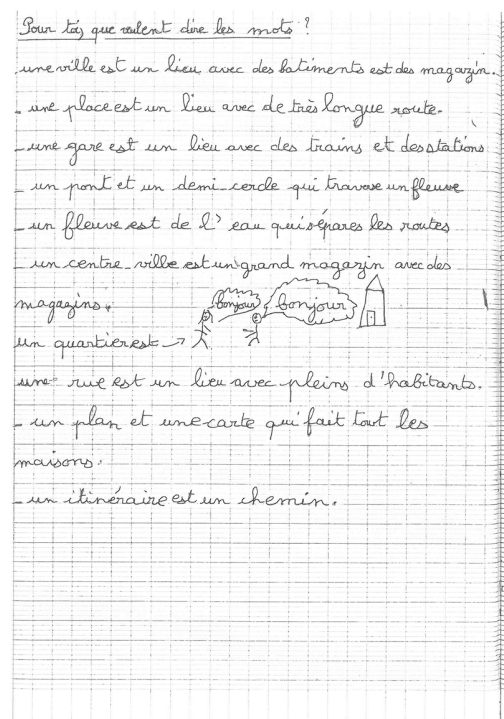 Pour toi, que veulent dire les mots : ?
une ville est un lieu avec des batiments est des magazin.
- une place est un lieu avec de très longue route.
- une gare est un lieu avec des trains et des stations
- un pont et un demi-cercle qui traverse un fleuve
- un fleuve est de l'eau qui sépares les routes
- un centre-ville est un grand magazin avec des
magazins.
bonjour bonjour
un quartier est →
une rue est un lieu avec pleins d'habitants.
- un plan et une carte qui fait tout les
maisons.
- un itinéraire est un chemin.